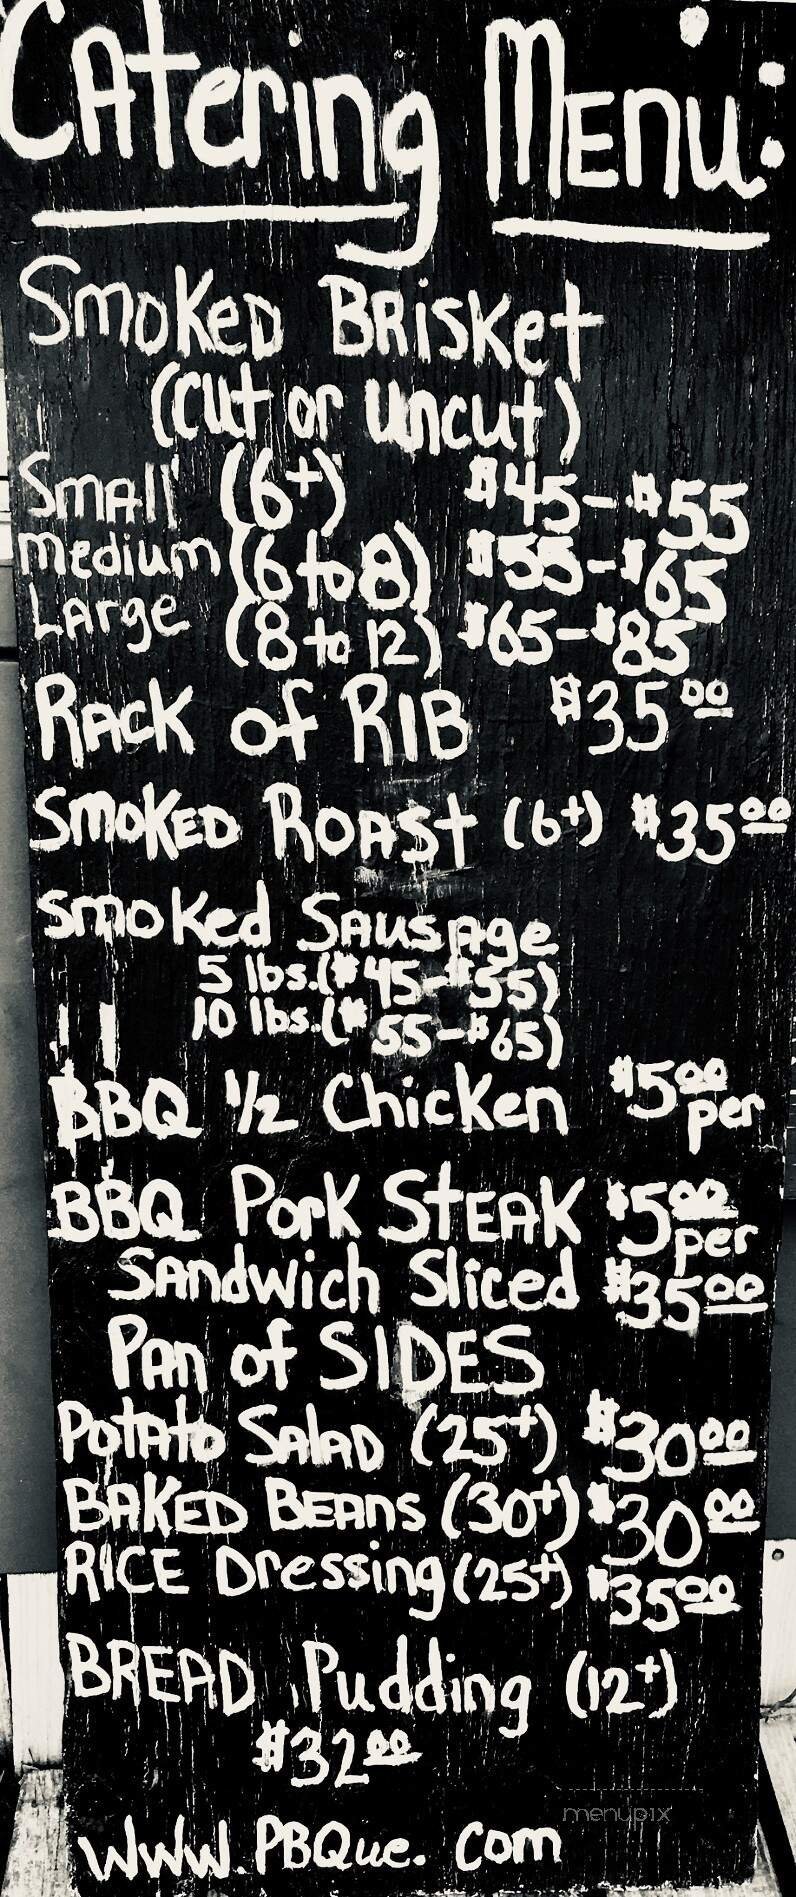 Catering Menu:
Smoked Brisket
(cut or uncut)
Small (6+) $45-$55
Medium (6 to 8) $55-$65
Large (8 to 12) $65-$85
Rack of RIB $35.00
Smoked Roast (6+) $35.00
Smoked Sausage
5 lbs.($45-$55)
10 lbs.($55-$65)
BBQ 1/2 Chicken $5.00 per
BBQ Pork Steak $5.00 per
Sandwich Sliced $35.00
Pan of SIDES
Potato Salad (25+) $30.00
Baked Beans (30+) $30.00
Rice Dressing (25+) $35.00
Bread Pudding (12+)
$32.00
menupix
www.PBQue.com